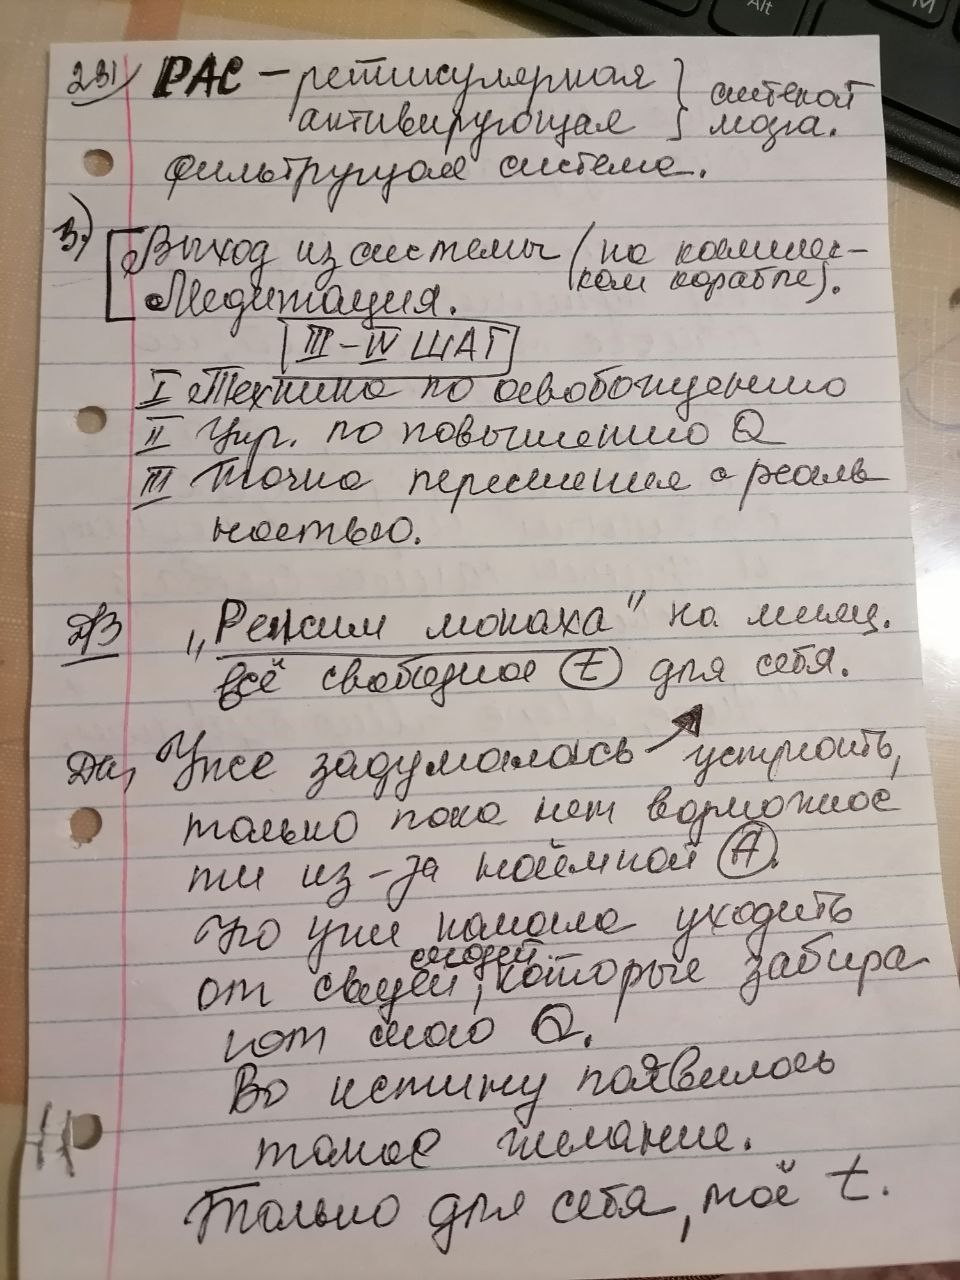 231) РАС – ретикулярная } система
активирующая } мозга.
Фильтрующая система.
3.) Выход из системы (на космичес-
ком корабле).
Медитация.
III – IV ШАГ
I Техника по освобождению
II Упр. по повышению Q
III Точка пересечения с реаль
ностью.
ДЗ „Режим монаха" на месяц.
всё свободное (t) для себя.
Да, Уже задумалась устроить,
только пока нет возможнос
ти из-за наёмной (А).
Но уже начала уходить
людей
от связей, которые забира
ют мою Q.
Во истину появилось
такое желание.
Только для себя, моё t.